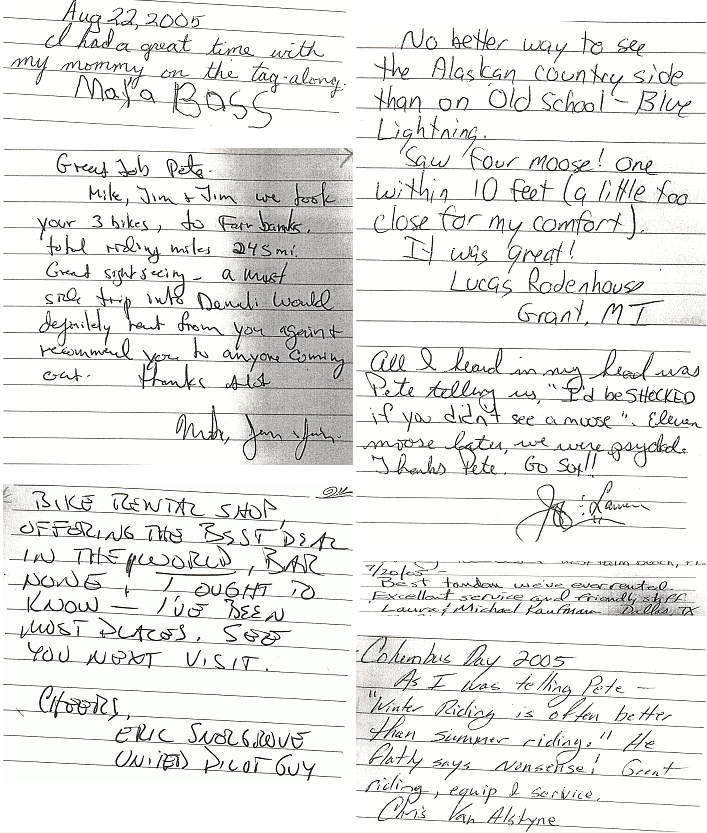 Aug 22, 2005
I had a great time with
my mommy on the tag-along.
Maja BOSS
Great Job Pete.
Mike, Jim & Jim we took
your 3 bikes, to Fairbanks.
total riding miles 245 mi.
Great sightseeing - a must
side trip into Denali would
definitely rent from you again &
recommend you to anyone coming
out. thanks alot
Mike, Jim & Jim.
BIKE RENTAL SHOP,
OFFERING THE BEST DEAL
IN THE WORLD, BAR
NONE & I OUGHT TO
KNOW — I'VE BEEN
MOST PLACES. SEE
YOU NEXT VISIT.
CHEERS,
ERIC SNORGROVE
UNITED PILOT GUY
No better way to see
the Alaskan country side
than on Old School - Blue
Lightning.
Saw four moose! one
within 10 feet (a little too
close for my comfort).
It was great!
Lucas Rodenhouse
Grant, MI
All I heard in my head was
Pete telling us, "I'd be SHOCKED
if you didn't see a moose". Eleven
moose later, we were psyched.
Thanks Pete. Go Sox!!
Lauren
7/20/05 -
Best tandem we've ever rented.
Excellent service and friendly staff
Laura & Michael Kaufman Dallas, TX
Columbus Day 2005
As I was telling Pete —
"Winter Riding is often better
than summer riding." He
flatly says nonsense! Great
riding, equip & service.
Chris Van Alstyne